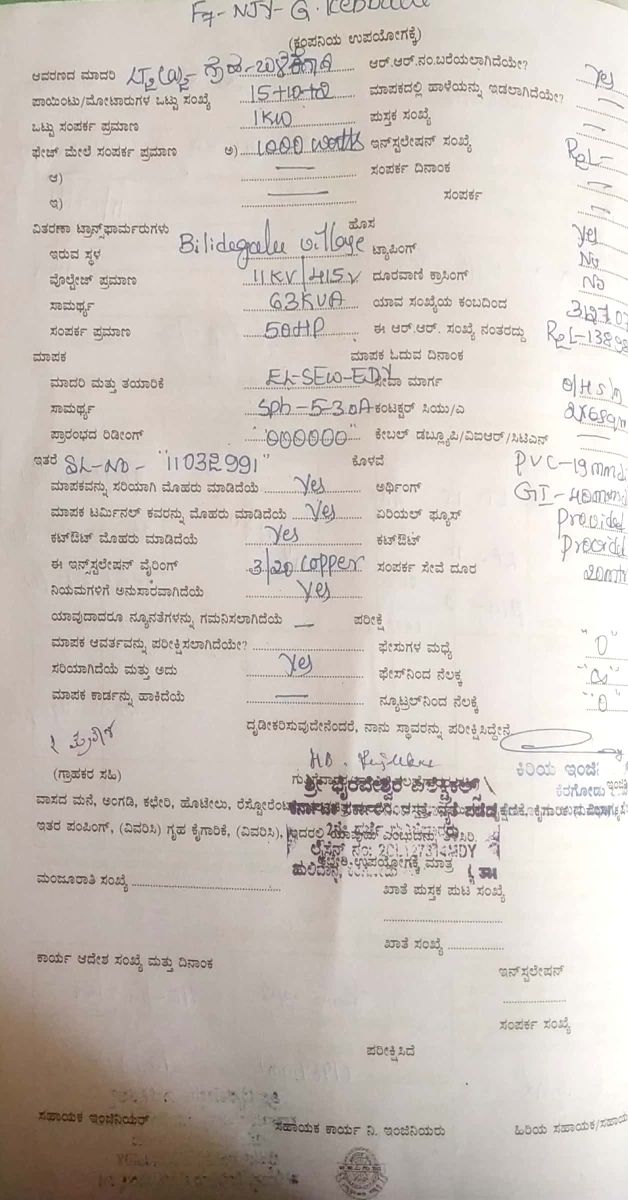 F7- NJY- G.
(ಕಂಪನಿಯ ಉಪಯೋಗಕ್ಕೆ)
ಆವರಣದ ಮಾದರಿ ಆರ್.ಆರ್.ನಂ.ಬರೆಯಲಾಗಿದೆಯೇ? Yes
ಪಾಯಿಂಟು/ಮೋಟಾರುಗಳ ಒಟ್ಟು ಸಂಖ್ಯೆ 15+10+2 ಮಾಪಕದಲ್ಲಿ ಹಾಳೆಯನ್ನು ಇಡಲಾಗಿದೆಯೇ? —
ಒಟ್ಟು ಸಂಪರ್ಕ ಪ್ರಮಾಣ 1KW ಪುಸ್ತಕ ಸಂಖ್ಯೆ —
ಫೇಜ್ ಮೇಲೆ ಸಂಪರ್ಕ ಪ್ರಮಾಣ ಅ) 1000 watts ಇನ್‌ಸ್ಟಲೇಷನ್ ಸಂಖ್ಯೆ R2L-
ಆ) — ಸಂಪರ್ಕ ದಿನಾಂಕ —
ಇ) — ಸಂಪರ್ಕ —
ವಿತರಣಾ ಟ್ರಾನ್ಸ್‌ಫಾರ್ಮರುಗಳು ಹೊಸ Yes
ಇರುವ ಸ್ಥಳ Bilidegalu village ಟ್ಯಾಪಿಂಗ್ No
ವೊಲ್ಟೇಜ್ ಪ್ರಮಾಣ 11KV/415V ದೂರವಾಣಿ ಕ್ರಾಸಿಂಗ್ No
ಸಾಮರ್ಥ್ಯ 63KVA ಯಾವ ಸಂಖ್ಯೆಯ ಕಂಬದಿಂದ
ಸಂಪರ್ಕ ಪ್ರಮಾಣ 50HP ಈ ಆರ್.ಆರ್. ಸಂಖ್ಯೆ ನಂತರದ್ದು R2L-13898
ಮಾಪಕ ಮಾಪಕ ಓದುವ ದಿನಾಂಕ
ಮಾದರಿ ಮತ್ತು ತಯಾರಿಕೆ EL-SEW-EDY ಸೇವಾ ಮಾರ್ಗ
ಸಾಮರ್ಥ್ಯ Sph-5-30A ಕಂಟಕ್ಟರ್ ಸಿಯು/ಎ
ಪ್ರಾರಂಭದ ರಿಡಿಂಗ್ "000000" ಕೇಬಲ್ ಡಬ್ಲ್ಯೂಪಿ/ವಿಐಆರ್/ಸಿಟಿಎನ್ —
ಇತರೆ SL-NO- "11032991" ಕೊಳವೆ PVC-19mm
ಮಾಪಕವನ್ನು ಸರಿಯಾಗಿ ಮೊಹರು ಮಾಡಿದೆಯೆ Yes ಅರ್ಥಿಂಗ್ GI-40mm
ಮಾಪಕ ಟರ್ಮಿನಲ್ ಕವರನ್ನು ಮೊಹರು ಮಾಡಿದೆಯೆ Yes ಏರಿಯಲ್ ಫ್ಯೂಸ್ Provided
ಕಟ್‌ಔಟ್ ಮೊಹರು ಮಾಡಿದೆಯೆ Yes ಕಟ್‌ಔಟ್ Provided
ಈ ಇನ್‌ಸ್ಟಲೇಷನ್ ವೈರಿಂಗ್ 3/20 copper ಸಂಪರ್ಕ ಸೇವೆ ದೂರ 20mtr
ನಿಯಮಗಳಿಗೆ ಅನುಸಾರವಾಗಿದೆಯೆ Yes
ಯಾವುದಾದರೂ ನ್ಯೂನತೆಗಳನ್ನು ಗಮನಿಸಲಾಗಿದೆಯೆ — ಪರೀಕ್ಷೆ
ಮಾಪಕ ಆವರ್ತವನ್ನು ಪರೀಕ್ಷಿಸಲಾಗಿದೆಯೇ? ಫೇಸುಗಳ ಮಧ್ಯೆ "0"
ಸರಿಯಾಗಿದೆಯೆ ಮತ್ತು ಅದು Yes ಫೇಸ್‌ನಿಂದ ನೆಲಕ್ಕೆ
ಮಾಪಕ ಕಾರ್ಡನ್ನು ಹಾಕಿದೆಯೆ — ನ್ಯೂಟ್ರಲ್‌ನಿಂದ ನೆಲಕ್ಕೆ "0"
ದೃಢೀಕರಿಸುವುದೇನೆಂದರೆ, ನಾನು ಸ್ಥಾವರನ್ನು ಪರೀಕ್ಷಿಸಿದ್ದೇನೆ
(ಗ್ರಾಹಕರ ಸಹಿ) ಕಿರಿಯ ಇಂಜಿ
ಶ್ರೀ ಭೈರವೇಶ್ವರ ಎಲೆಕ್ಟ್ರಿಕಲ್ಸ್ ಕೆರಗೋಡು
ವಾಸದ ಮನೆ, ಅಂಗಡಿ, ಕಛೇರಿ, ಹೋಟೇಲು, ರೆಸ್ಟೋರೆಂಟ್
ಇತರ ಪಂಪಿಂಗ್, (ವಿವರಿಸಿ) ಗೃಹ ಕೈಗಾರಿಕೆ, (ವಿವರಿಸಿ), ಇದರಲ್ಲಿ ಯಾವುದು ಎಂಬುದನ್ನು ತಿಳಿಸಿರಿ.
ಕಛೇರಿ ಉಪಯೋಗಕ್ಕೆ ಮಾತ್ರ
ಮಂಜೂರಾತಿ ಸಂಖ್ಯೆ ಖಾತೆ ಪುಸ್ತಕ ಪುಟ ಸಂಖ್ಯೆ
ಖಾತೆ ಸಂಖ್ಯೆ
ಕಾರ್ಯ ಆದೇಶ ಸಂಖ್ಯೆ ಮತ್ತು ದಿನಾಂಕ ಇನ್‌ಸ್ಟಲೇಷನ್
ಸಂಪರ್ಕ ಸಂಖ್ಯೆ
ಪರೀಕ್ಷಿಸಿದೆ
ಸಹಾಯಕ ಇಂಜಿನಿಯರ್ ಸಹಾಯಕ ಕಾರ್ಯ ನಿ. ಇಂಜಿನಿಯರು ಹಿರಿಯ ಸಹಾಯಕ/ಸಹಾಯ